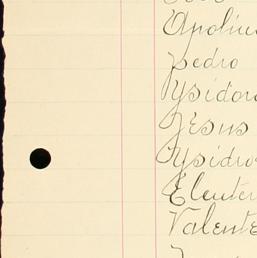 Apolin
Pedro
Ysidor
Jesus
Ysidro
Eleuter
Valente